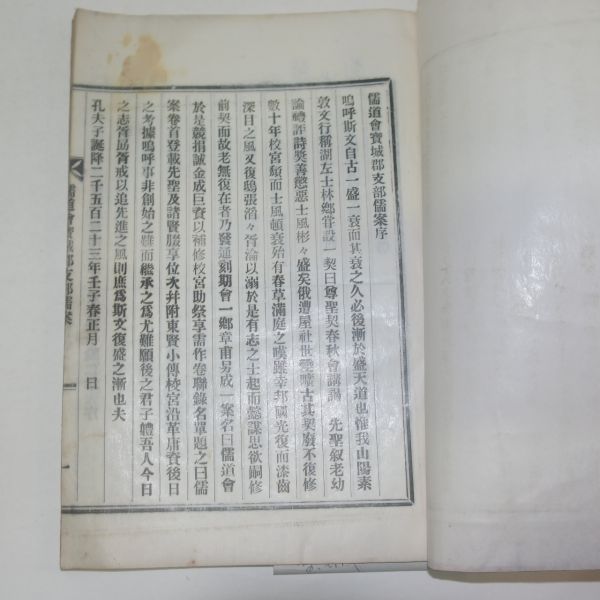 儒道會寶城郡支部儒案序
嗚呼斯文自古一盛一衰而其衰之久必後漸於盛天道也惟我山陽素
敦文行稱湖左士林鄕甞設一契曰尊聖契春秋會講謁 先聖叙老幼
論禮詐詩奬善懲惡士風彬々盛矣俄遭屋社世變曠古其契廢不復修
數十年校宮頹而士風頓衰殆有春草滿庭之嘆躋幸邦國光復而漆齒
深目之風又復鴟張滔々胥淪以溺於是有志之士起而懿謀思欲嗣修
前契而故老無復在者乃發通刻期會一鄕章甫另成一案名曰儒道會
於是競捐誠金成巨資以補修校宮助祭享需作卷聯錄名單題之曰儒
案卷首登載先聖及諸賢腏享位次幷附東賢小傳校宮沿革庸資後日
之考據嗚呼事非創始之難而繼承之爲尤難願後之君子體吾人今日
之志胥勗胥戒以追先進之風則庶爲斯文復盛之漸也夫
孔夫子誕降二千五百二十三年壬子春正月 日
儒道會寶城郡支部儒案
一